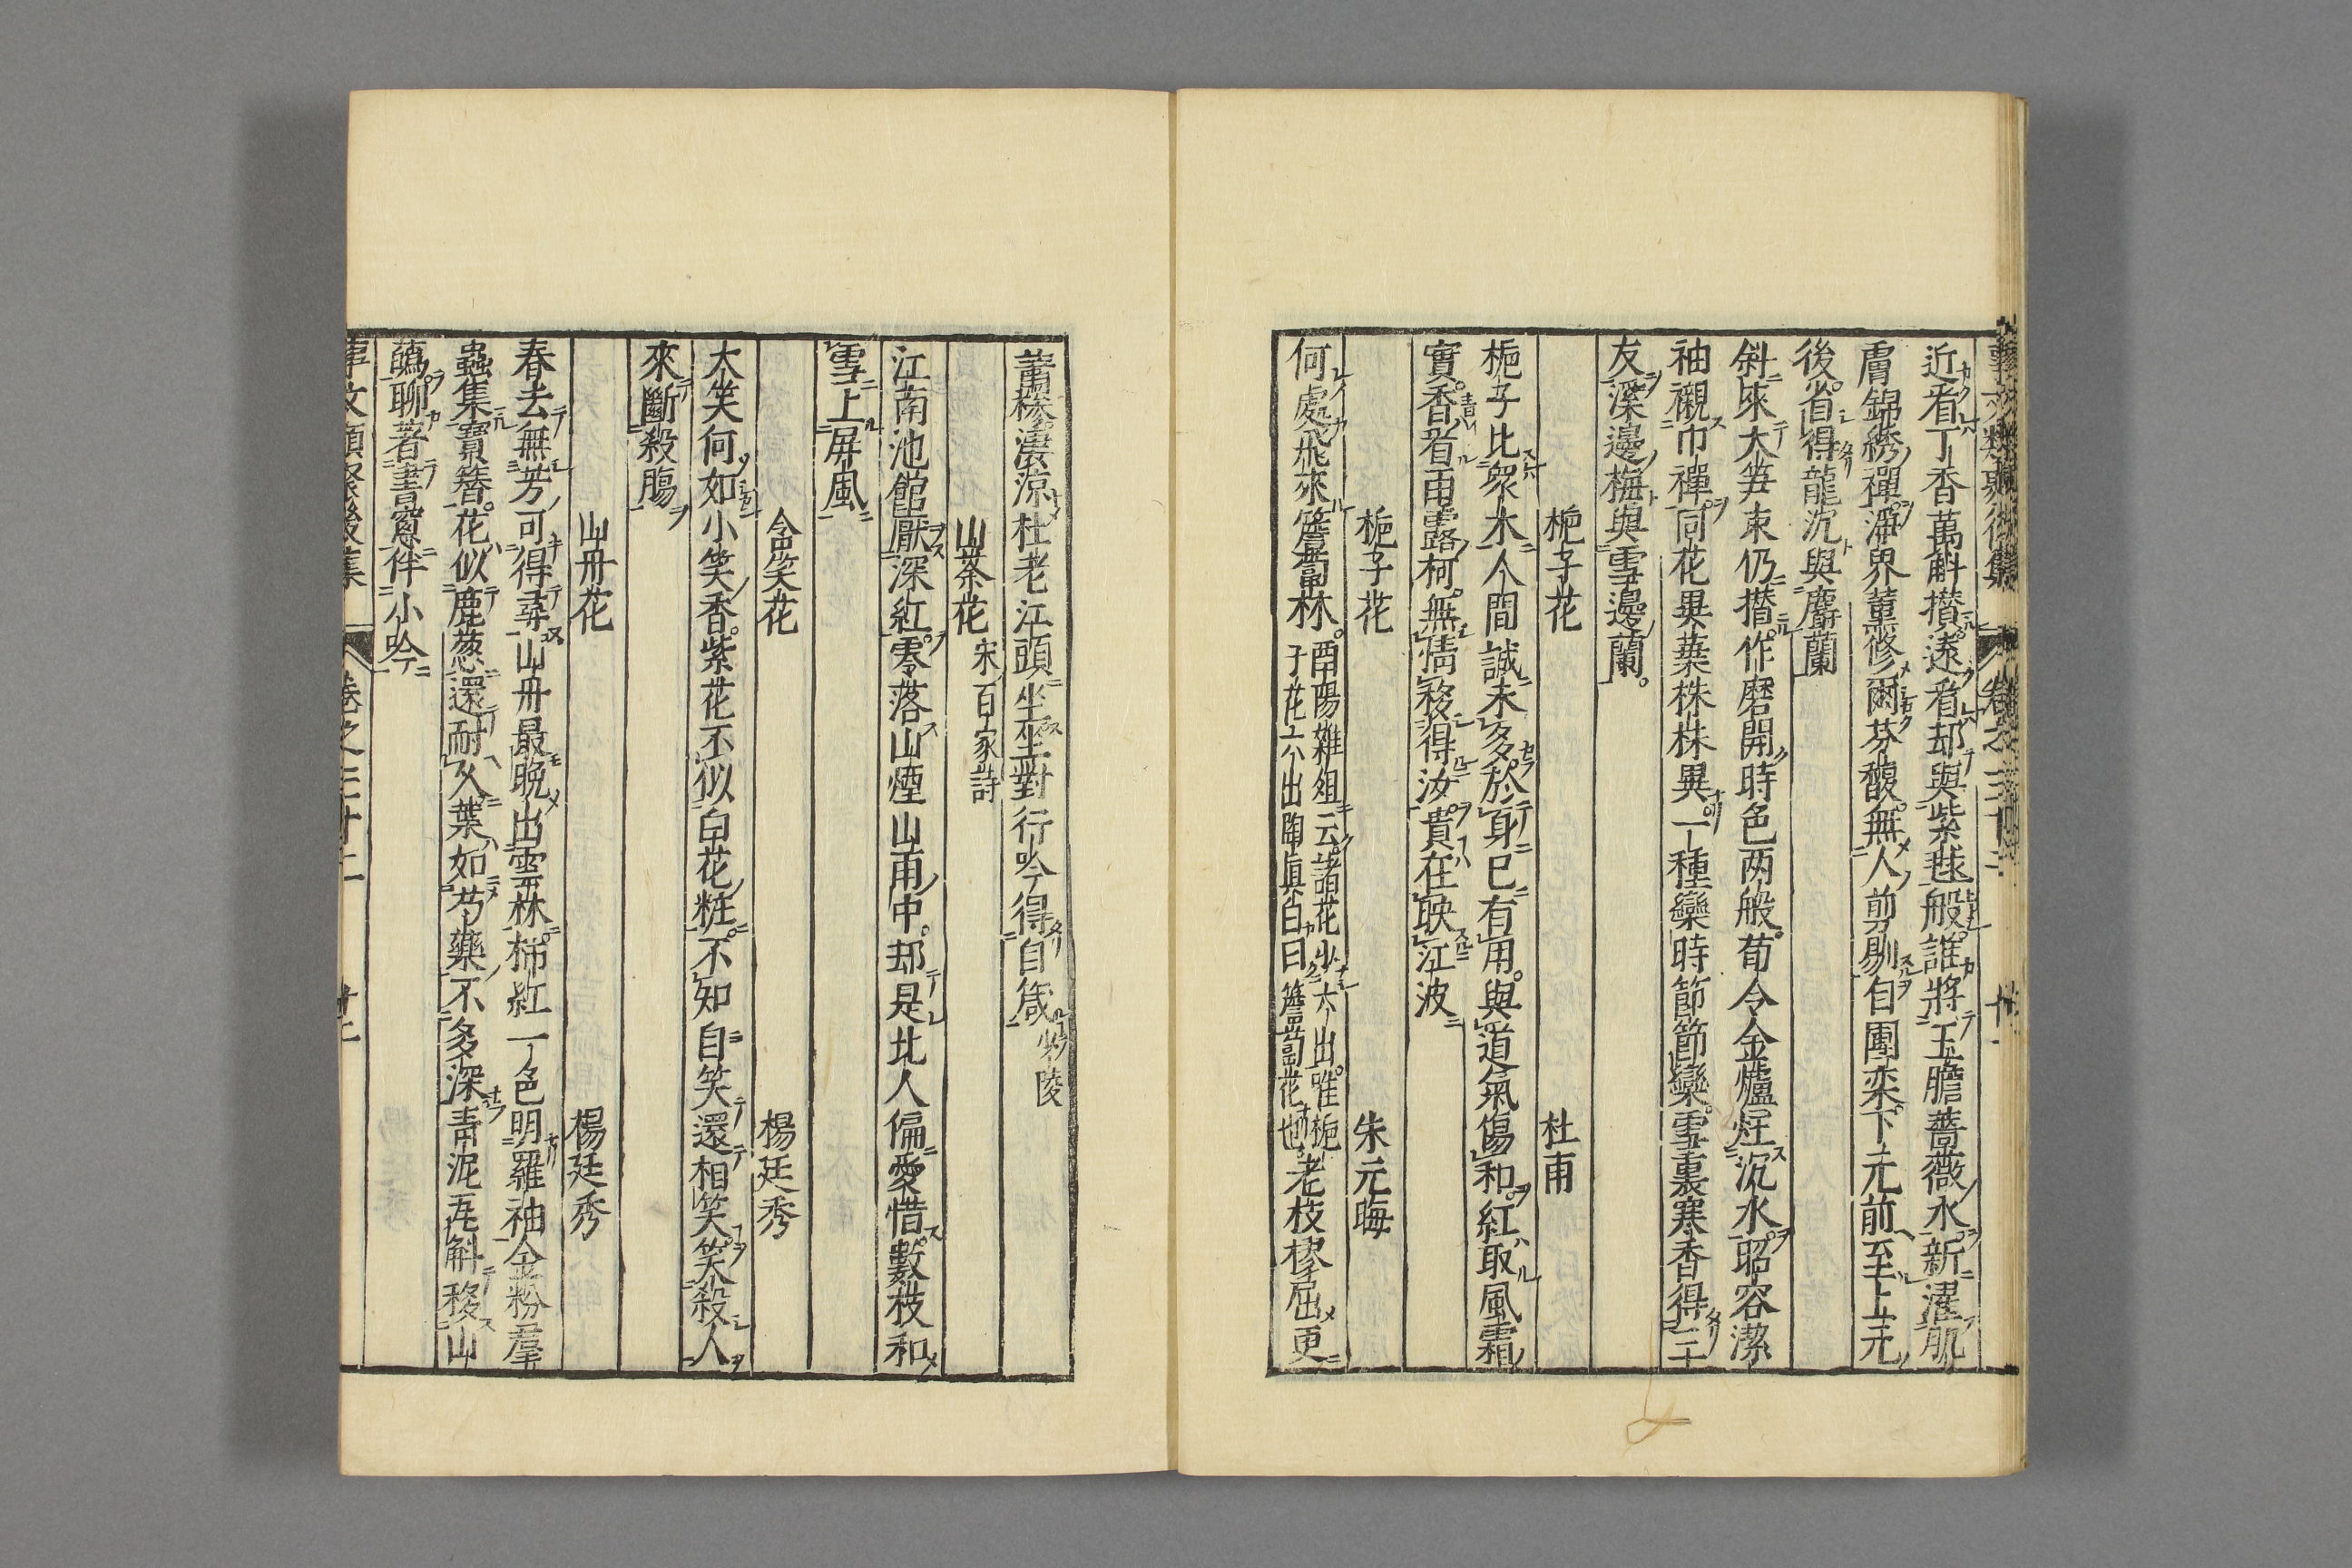 近看丁香萬斛攅遠看却與紫毬般誰將玉膽薔薇水新濯肌
膚錦綉禪海界薰修爾芬馥無人剪剔自團栾下元前至上元
後省得龍沉與麝蘭
斜來大笋束仍攅作磨開時色两般荀令金爐炷沉水昭容潔
袖襯巾襌同花異葉株株異一種欒時節節欒雪裏寒香得三
友溪邊梅與雪邊蘭
梔子花　杜甫
梔子比衆木人間誠未多於身已有用與道氣傷和紅取風霜
實香看雨露柯無情移得汝貴在映江波
梔子花　朱元晦
何處飛來簷蔔林酉陽雜俎云諸花少六出唯梔
子花六出陶真白曰簷蔔花也老枝樛屈更
蕭槮凄涼杜老江頭坐對行吟得自箴少陵
山茶花宋百家詩
江南池館厭深紅零落山煙山雨中却是北人偏愛惜數枝和
雪上屏風
含笑花　楊廷秀
大笑何如小笑香紫花不似白花粧不知自笑還相笑笑殺人
來斷殺膓
山丹花　楊廷秀
春去無芳可得尋山丹最晚出雲林柿紅一色明羅袖金粉羣
蟲集寶簪花似鹿葱還耐久葉如芍藥不多深青泥瓦斛移山
蘤聊著書窻伴小吟
事文類聚後集　卷之三十二　廿二